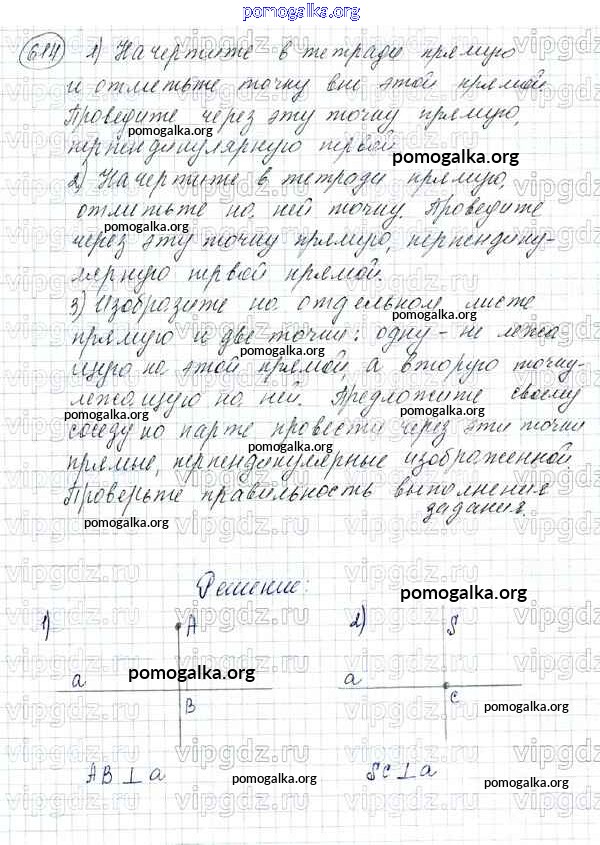 pomogalka.org
614 1) Начертите в тетради прямую
и отметьте точку вне этой прямой.
Проведите через эту точку прямую,
pomogalka.org
перпендикулярную первой.
pomogalka.org
2) Начертите в тетради прямую,
отметьте на ней точку. Проведите
pomogalka.org
через эту точку прямую, перпендику-
лярную первой прямой.
3) Изобразите на отдельном листе
прямую и две точки: одну - не лежа
pomogalka.org
щую на этой прямой, а вторую точку-
лежащую на ней. Предложите своему
pomogalka.org
соседу по парте провести через эти точки
pomogalka.org
прямые, перпендикулярные изображенной.
Проверьте правильность выполнения
задания.
pomogalka.org
Решение:
pomogalka.org
1) A 2) S
a pomogalka.org a
B c
pomogalka.org
AB ⊥ a Sc ⊥ a
pomogalka.org pomogalka.org